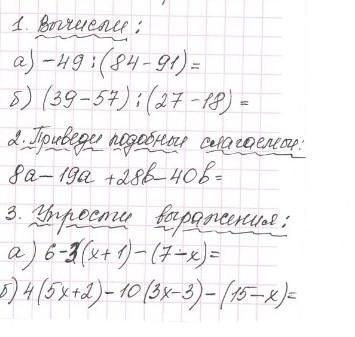 1. Вычисли:
а) -49 : (84 - 91) =
б) (39 - 57) : (27 - 18) =
2. Приведи подобные слагаемые:
8a - 19a + 28b - 40b =
3. Упрости выражения:
а) 6 - 3(x + 1) - (7 - x) =
б) 4(5x + 2) - 10(3x - 3) - (15 - x) =